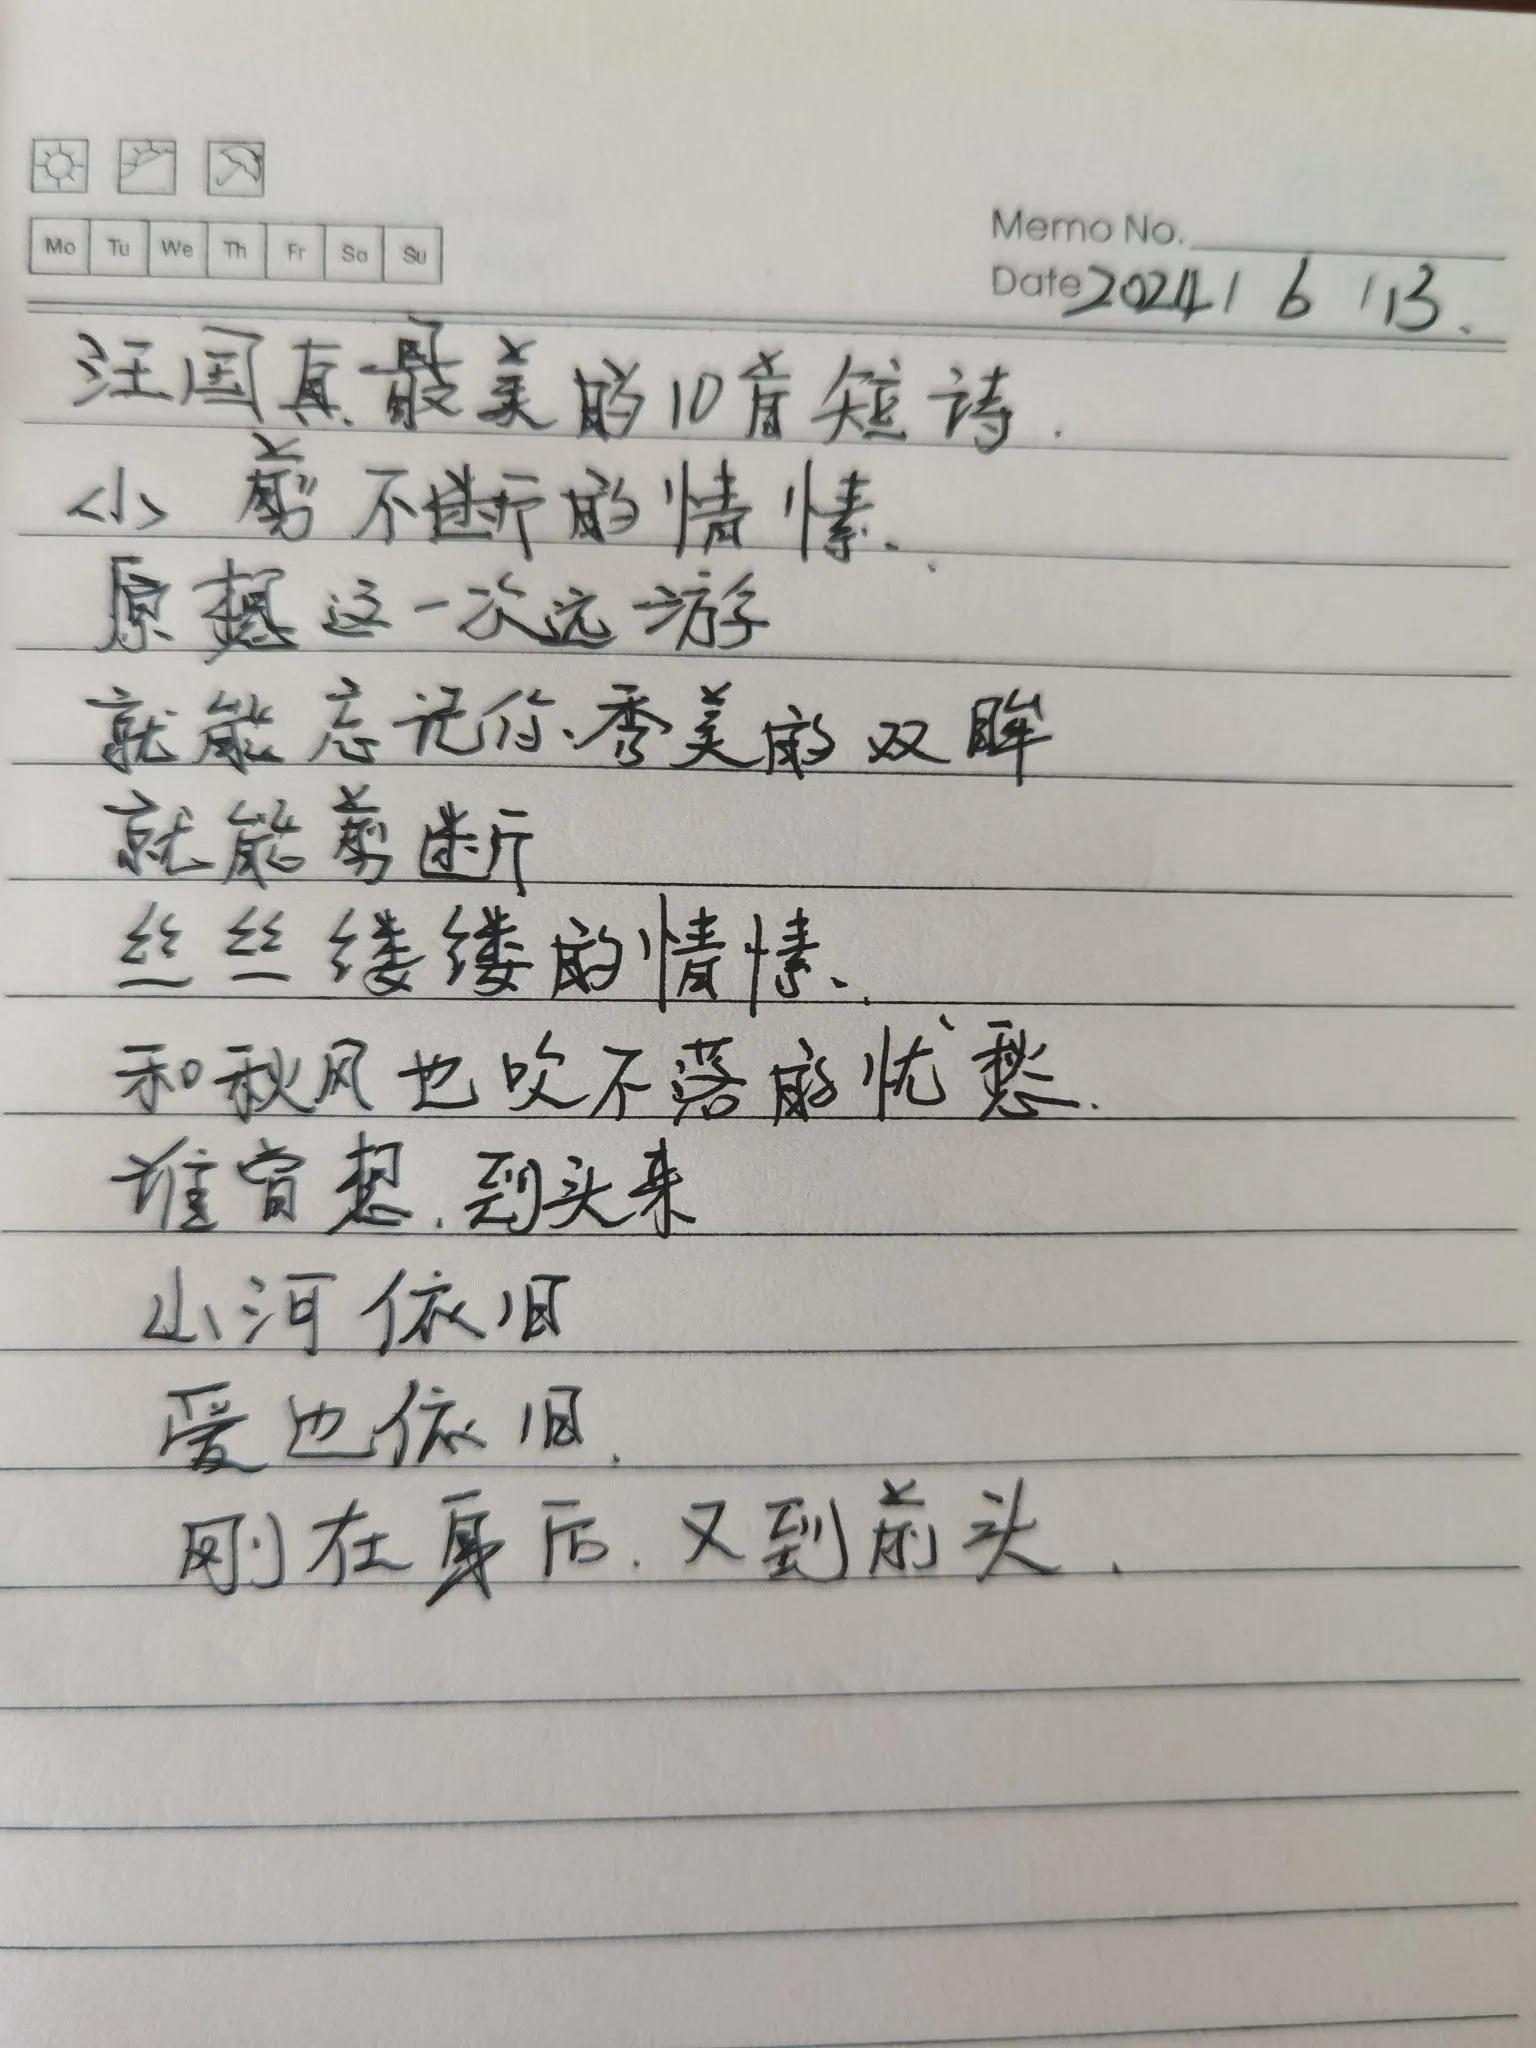 Mo Tu We Th Fr Sa Su
Memo No.
Date 2024 / 6 / 13.
汪国真最美的10首短诗.
<1> 剪不断的情愫.
原想这一次远游
就能忘记你秀美的双眸
就能剪断
丝丝缕缕的情愫.
和秋风也吹不落的忧愁.
谁曾想.到头来
山河依旧
爱也依旧.
刚在身后.又到前头.